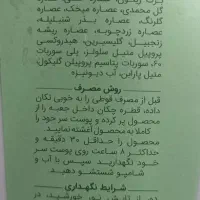 گل محمدی، عصاره میخک، عصاره
گلرنگ، عصاره بذر شنبلیله،
عصاره زردچوبه، عصاره ریشه
زنجبیل، گلیسیرین، هیدروکسی
پروپیل متیل سلولز، پلی سوربات
۶۰، سوربات پتاسیم پروپیلن گلیکول،
متیل پارابن، آب دیونیزه
روش مصرف
قبل از مصرف قوطی را به خوبی تکان
داده، قطره چکان داخل جعبه را از
محصول پر کرده و پوست سر خود را
کاملا به محصول آغشته نمایید.
محصول را حداقل ۳۰ دقیقه و
حداکثر ۸ ساعت روی پوست سر
خود نگهدارید. سپس با آب و
شامپو شستشو دهید.
شرایط نگهداری
نور خورشید، در